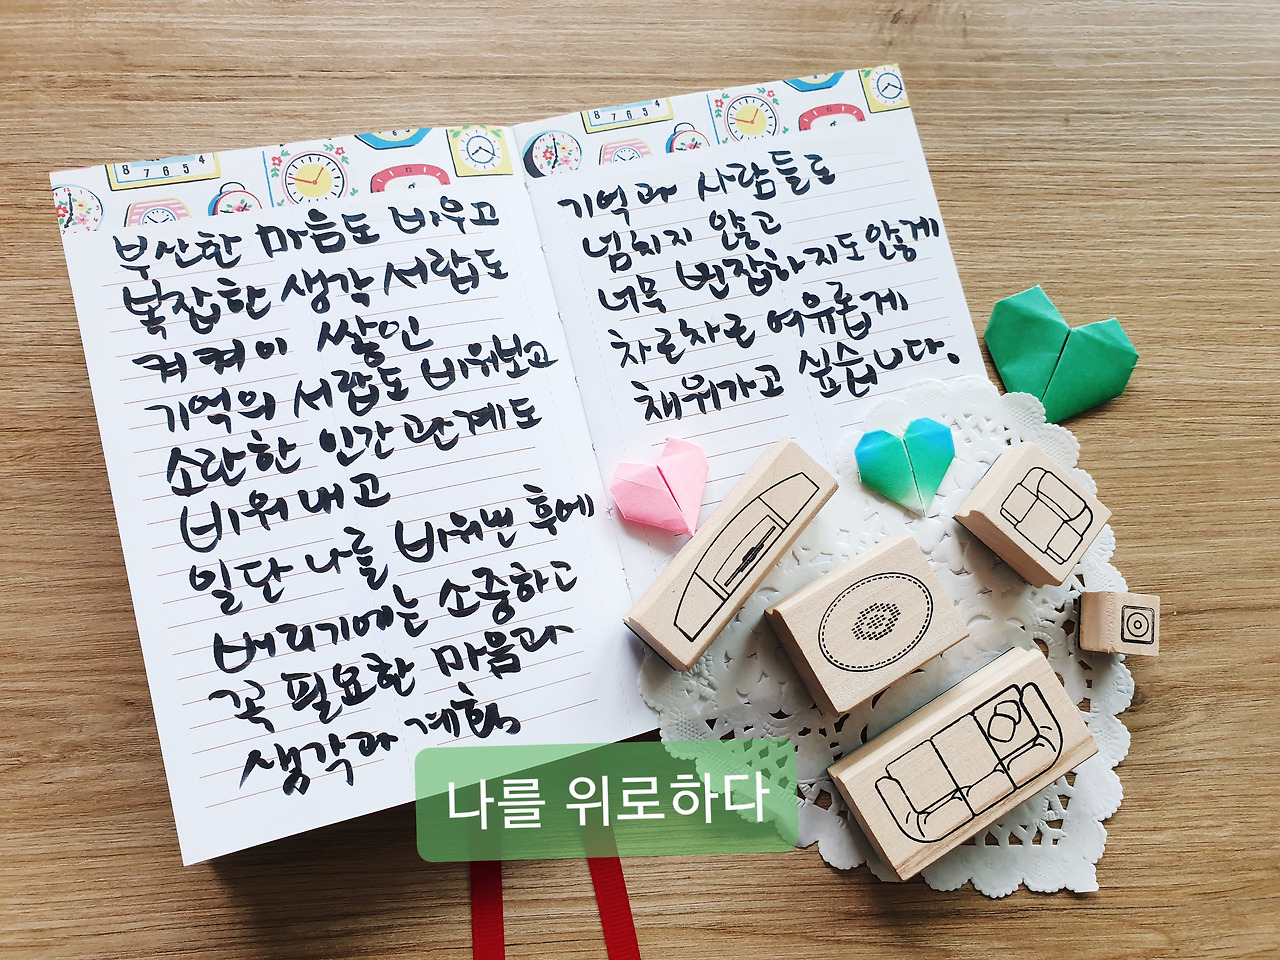 부산한 마음도 비우고
복잡한 생각 서랍도
켜켜이 쌓인
기억의 서랍도 비워보고
소란한 인간관계도
비워내고
일단 나를 비워낸 후에
버리기에는 소중하고
꼭 필요한 마음과
생각과 계획
기억과 사람들로
넘치지 않고
너무 번잡하지도 않게
차르차르 여유롭게
채워가고 싶습니다.
나를 위로하다